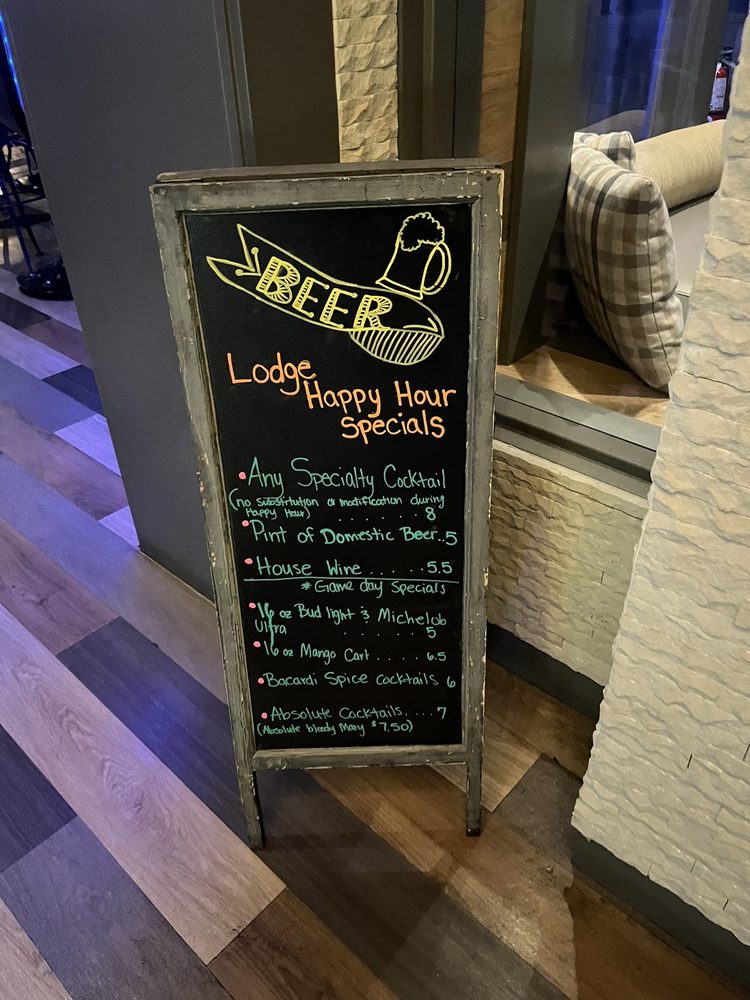 BEER
Lodge
Happy Hour
Specials
• Any Specialty Cocktail
(no substitution or modification during
Happy Hour) . . . . . . 8
• Pint of Domestic Beer..5
• House Wine . . . . . 5.5
* Game day Specials
• 16 oz Bud light & Michelob
Ultra . . . . . 5
• 16 oz Mango Cart . . . . . 6.5
• Bacardi Spice cocktails 6
• Absolute Cocktails. . . . 7
(Absolute bloody Mary $7.50)